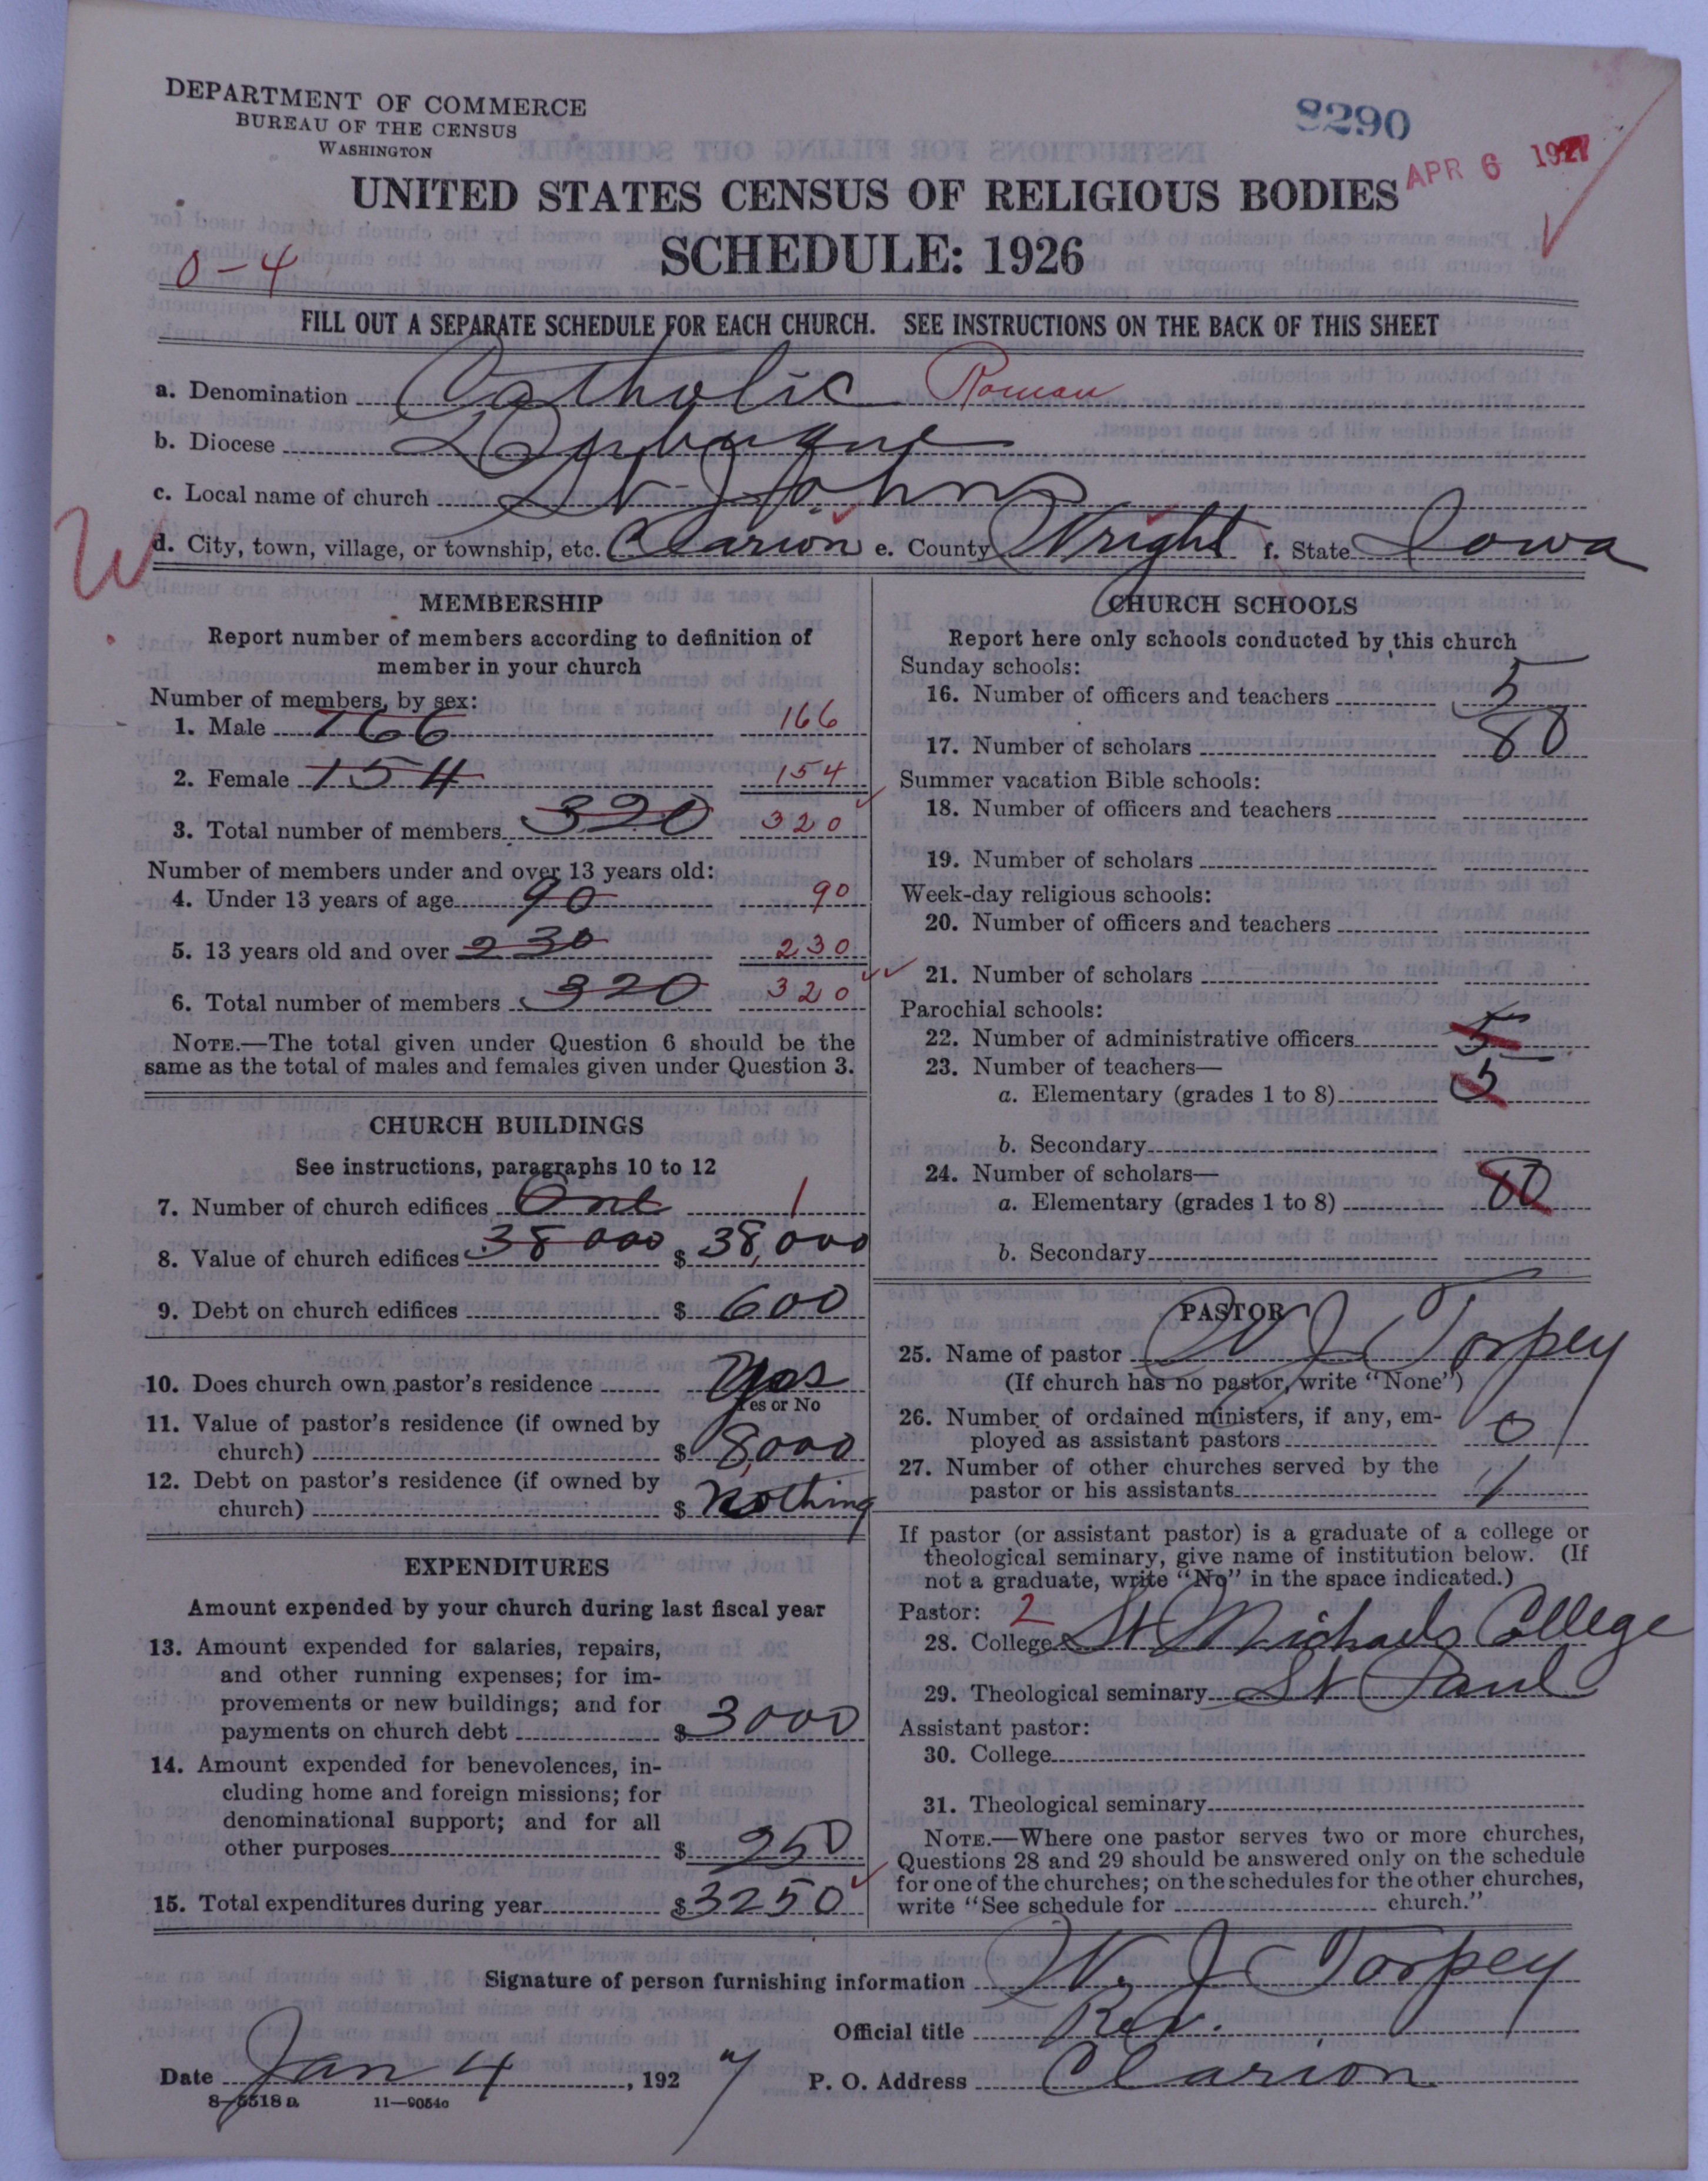 DEPARTMENT OF COMMERCE
BUREAU OF THE CENSUS
WASHINGTON
8290
APR 6 1927
UNITED STATES CENSUS OF RELIGIOUS BODIES
SCHEDULE: 1926
0-4
FILL OUT A SEPARATE SCHEDULE FOR EACH CHURCH. SEE INSTRUCTIONS ON THE BACK OF THIS SHEET
a. Denomination Catholic Roman
b. Diocese Dubuque
c. Local name of church St Johns
W
d. City, town, village, or township, etc. Clarion e. County Wright f. State Iowa
MEMBERSHIP
Report number of members according to definition of
member in your church
Number of members, by sex:
1. Male 166 166
2. Female 154 154
3. Total number of members 320 320
Number of members under and over 13 years old:
4. Under 13 years of age 90 90
5. 13 years old and over 230 230
6. Total number of members 320 320
NOTE.—The total given under Question 6 should be the
same as the total of males and females given under Question 3.
CHURCH BUILDINGS
See instructions, paragraphs 10 to 12
7. Number of church edifices One 1
8. Value of church edifices 38 000 $ 38,000
9. Debt on church edifices $ 600
10. Does church own pastor's residence Yes
Yes or No
11. Value of pastor's residence (if owned by
church) $ 8,000
12. Debt on pastor's residence (if owned by
church) $ nothing
EXPENDITURES
Amount expended by your church during last fiscal year
13. Amount expended for salaries, repairs,
and other running expenses; for im-
provements or new buildings; and for
payments on church debt $ 3000
14. Amount expended for benevolences, in-
cluding home and foreign missions; for
denominational support; and for all
other purposes $ 250
15. Total expenditures during year $ 3250
CHURCH SCHOOLS
Report here only schools conducted by this church
Sunday schools:
16. Number of officers and teachers 5
17. Number of scholars 80
Summer vacation Bible schools:
18. Number of officers and teachers
19. Number of scholars
Week-day religious schools:
20. Number of officers and teachers
21. Number of scholars
Parochial schools:
22. Number of administrative officers 5
23. Number of teachers—
a. Elementary (grades 1 to 8) 5
b. Secondary
24. Number of scholars—
a. Elementary (grades 1 to 8) 80
b. Secondary
PASTOR
25. Name of pastor W J Torpey
(If church has no pastor, write "None")
26. Number of ordained ministers, if any, em-
ployed as assistant pastors 0
27. Number of other churches served by the
pastor or his assistants 1
If pastor (or assistant pastor) is a graduate of a college or
theological seminary, give name of institution below. (If
not a graduate, write "No" in the space indicated.)
Pastor: 2
28. College St Michaels College
29. Theological seminary St Paul
Assistant pastor:
30. College
31. Theological seminary
NOTE.—Where one pastor serves two or more churches,
Questions 28 and 29 should be answered only on the schedule
for one of the churches; on the schedules for the other churches,
write "See schedule for church."
Signature of person furnishing information W. J Torpey
Official title Rev.
Date Jan 4, 1927 P. O. Address Clarion
8-5518 a 11-9054o